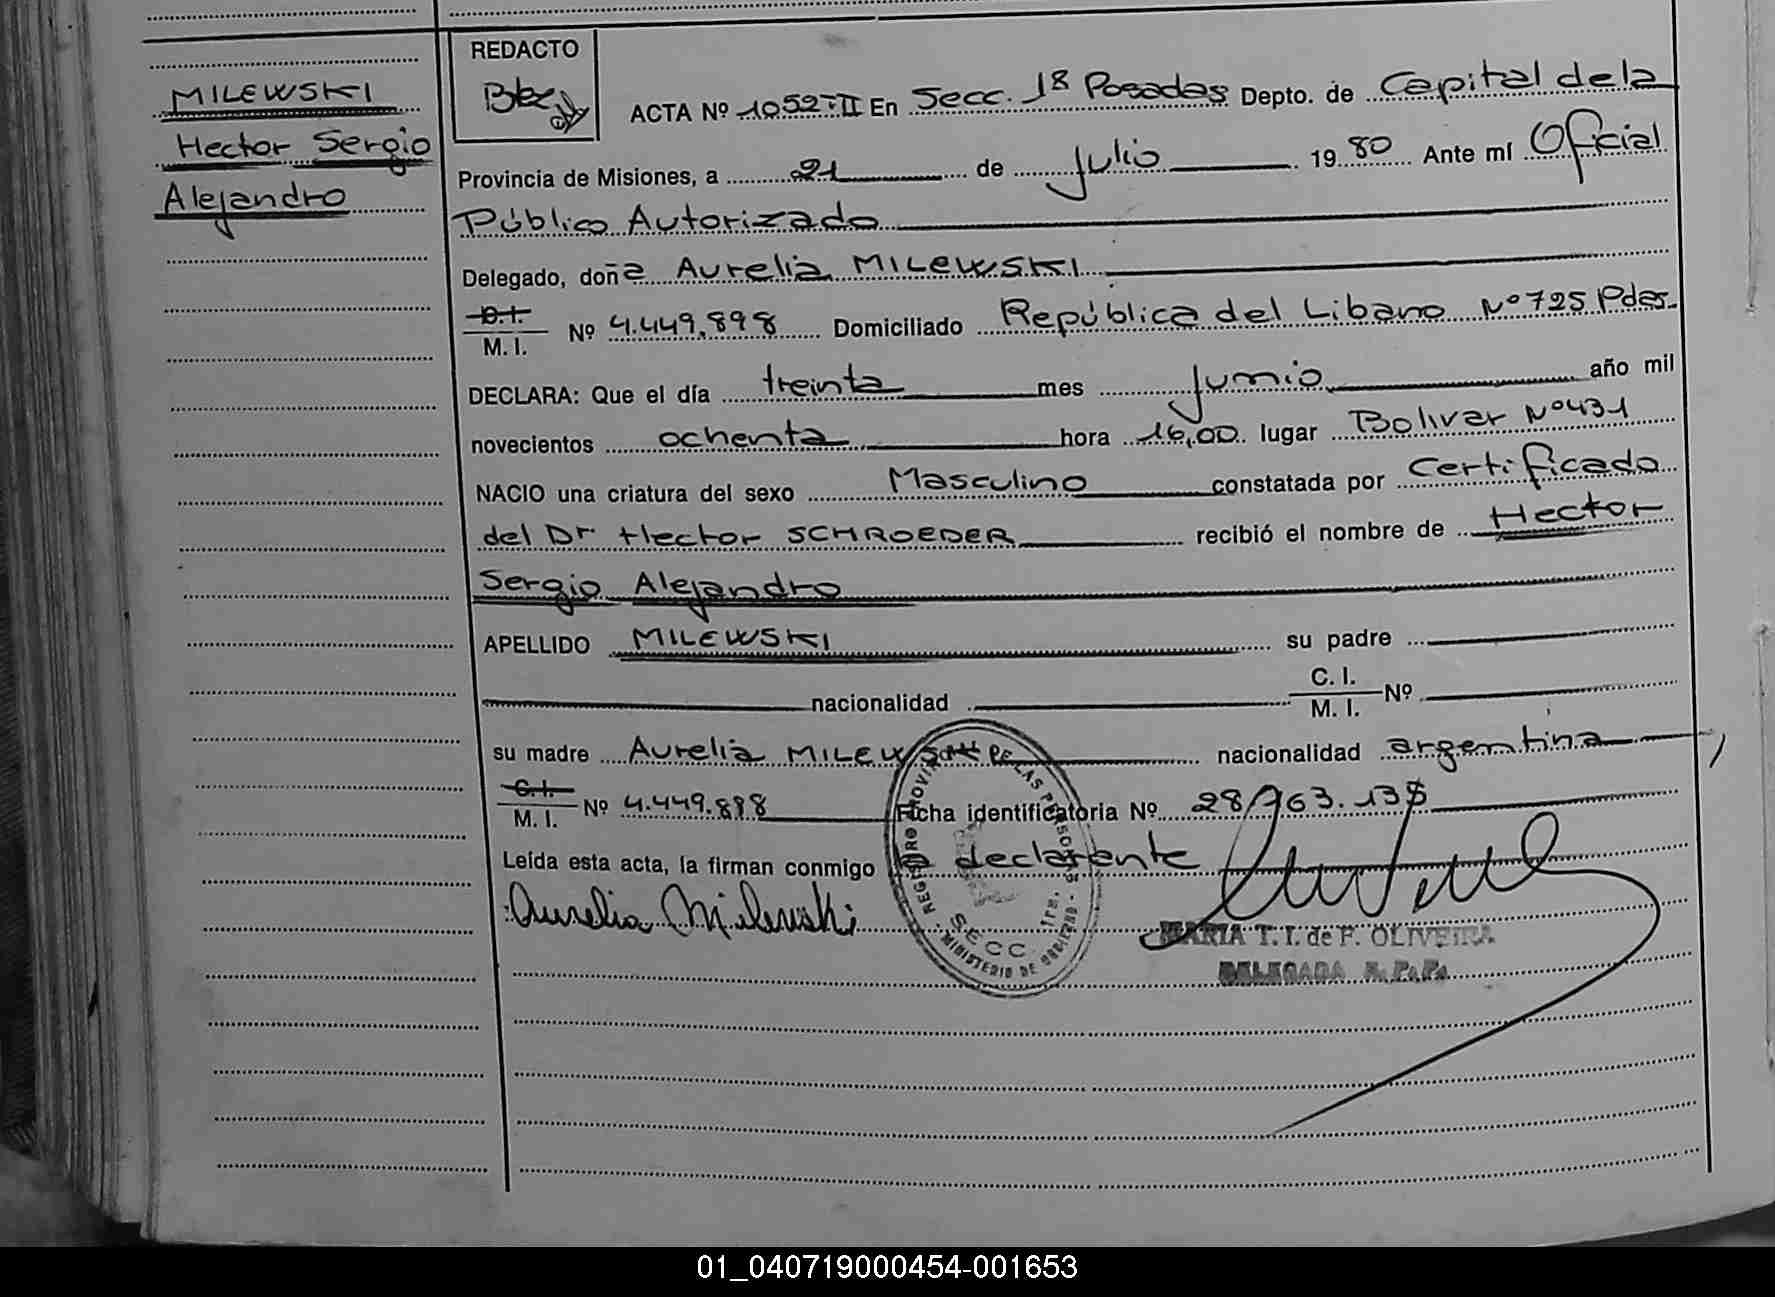 MILEWSKI
Hector Sergio
Alejandro
REDACTO
ACTA Nº 1052-II En Secc. 1ª Posadas Depto. de Capital de la
Provincia de Misiones, a 21 de Julio 1980 Ante mí Oficial
Público Autorizado
Delegado, doña Aurelia MILEWSKI
C.I. M. I. Nº 4.449.898 Domiciliado República del Libano Nº 725 Pdas.
DECLARA: Que el día treinta mes Junio año mil
novecientos ochenta hora 16,00 lugar Bolivar Nº 431
NACIO una criatura del sexo Masculino constatada por Certificado
del Dr Hector SCHROEDER recibió el nombre de Hector
Sergio Alejandro
APELLIDO MILEWSKI su padre
nacionalidad C. I. M. I. Nº
su madre Aurelia MILEWSKI nacionalidad argentina
C. I. M. I. Nº 4.449.898 Ficha identificatoria Nº 28.763.13
Leída esta acta, la firman conmigo la declarante
Aurelia Milewski
REGISTRO PROVINCIAL DE LAS PERSONAS
SECC. 1ra.
MINISTERIO DE GOBIERNO
MARIA T. I. de F. OLIVEIRA
DELEGADA R. P. P.
01_040719000454-001653